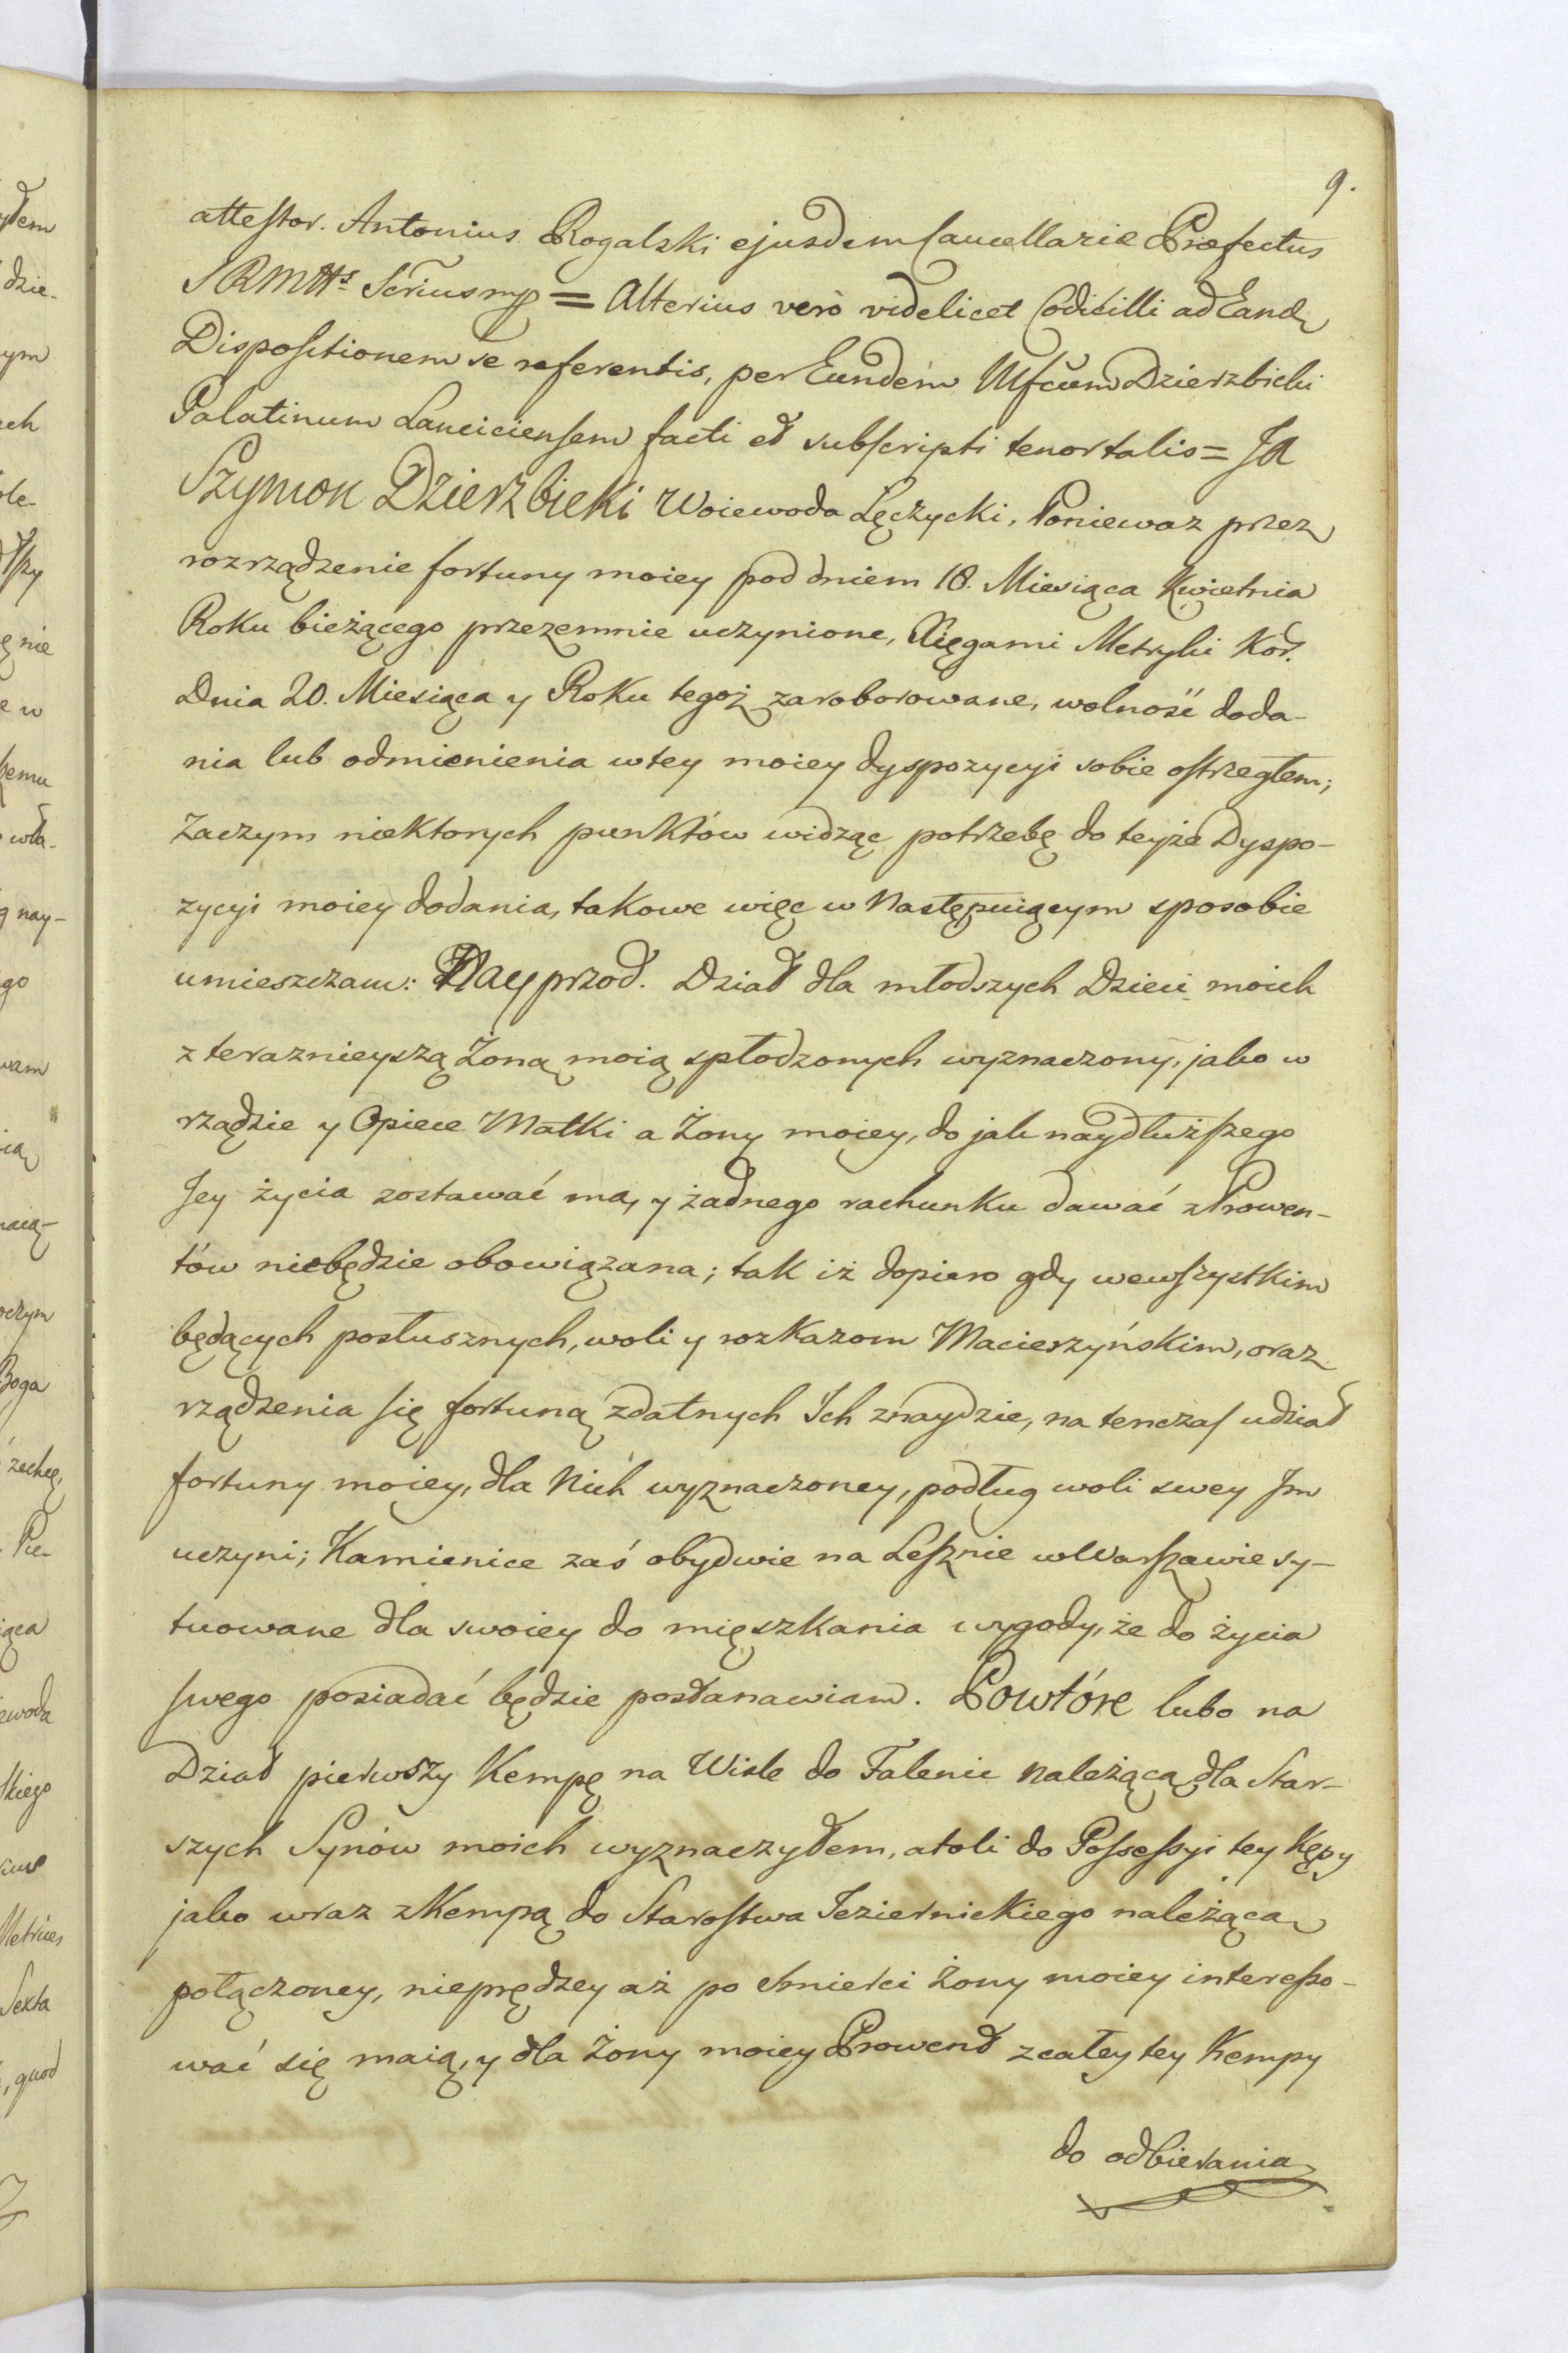 9.
attestor. Antonius Rogalski ejusdem Cancellarie Præfectus
SRMtts Scriusmp = Alterius verò videlicet Codicilli ad Eand
Dispositionem se referentis, per Eundem Mfcum Dzierzbicki
Palatinum Lanciciensem facti et subscripti tenor talis = Ja
Szymon Dzierzbicki Woiewoda Łęczycki, Poniewaz przez
rozrządzenie fortuny moiey pod dniem 18. Miesiąca Kwietnia
Roku bieżącego przezemnie uczynione, Xięgami Metryki Kor.
Dnia 20. Miesiąca y Roku tegoż zaroborowane, wolność doda-
nia lub odmienienia w tey moiey dyspozycyi sobie ostrzegłem;
Zaczym niektorych punktów widząc potrzebę do teyże Dyspo-
zycyi moiey dodania, takowe więc w Następuiącym sposobie
umieszczam: Nayprzod. Dział dla młodszych Dzieci moich
z teraznieyszą Żoną moią spłodzonych wyznaczony, jako w
rządzie y Opiece Matki a Żony moiey, do jak naydłuższego
Jey życia zostawać ma, y żadnego rachunku dawać z Prowen-
tów niebędzie obowiązana; tak iż dopiero gdy wewszystkim
będących posłusznych, woli y rozkazom Macierzyńskim, oraz
rządzenia się fortuną zdatnych Ich znaydzie, na tenczas udział
fortuny moiey, dla Nich wyznaczoney, podług woli swey Im
uczyni; Kamienice zaś obydwie na Lesznie w Warszawie sy-
tuowane dla swoiey do mięszkania wygody, że do życia
swego posiadać będzie postanawiam. Powtóre lubo na
Dział pierwszy Kempę na Wisle do Falenic Należącą dla Star-
szych Synów moich wyznaczyłem, atoli do Possessyi tey Kępy
jako wraz z Kempą do Starostwa Jeziernickiego należącą
połączoney, nieprędzey aż po Smierci Żony moiey interesso-
wać się maią, y dla Żony moiey Prowent z całey tey Kempy
do odbierania